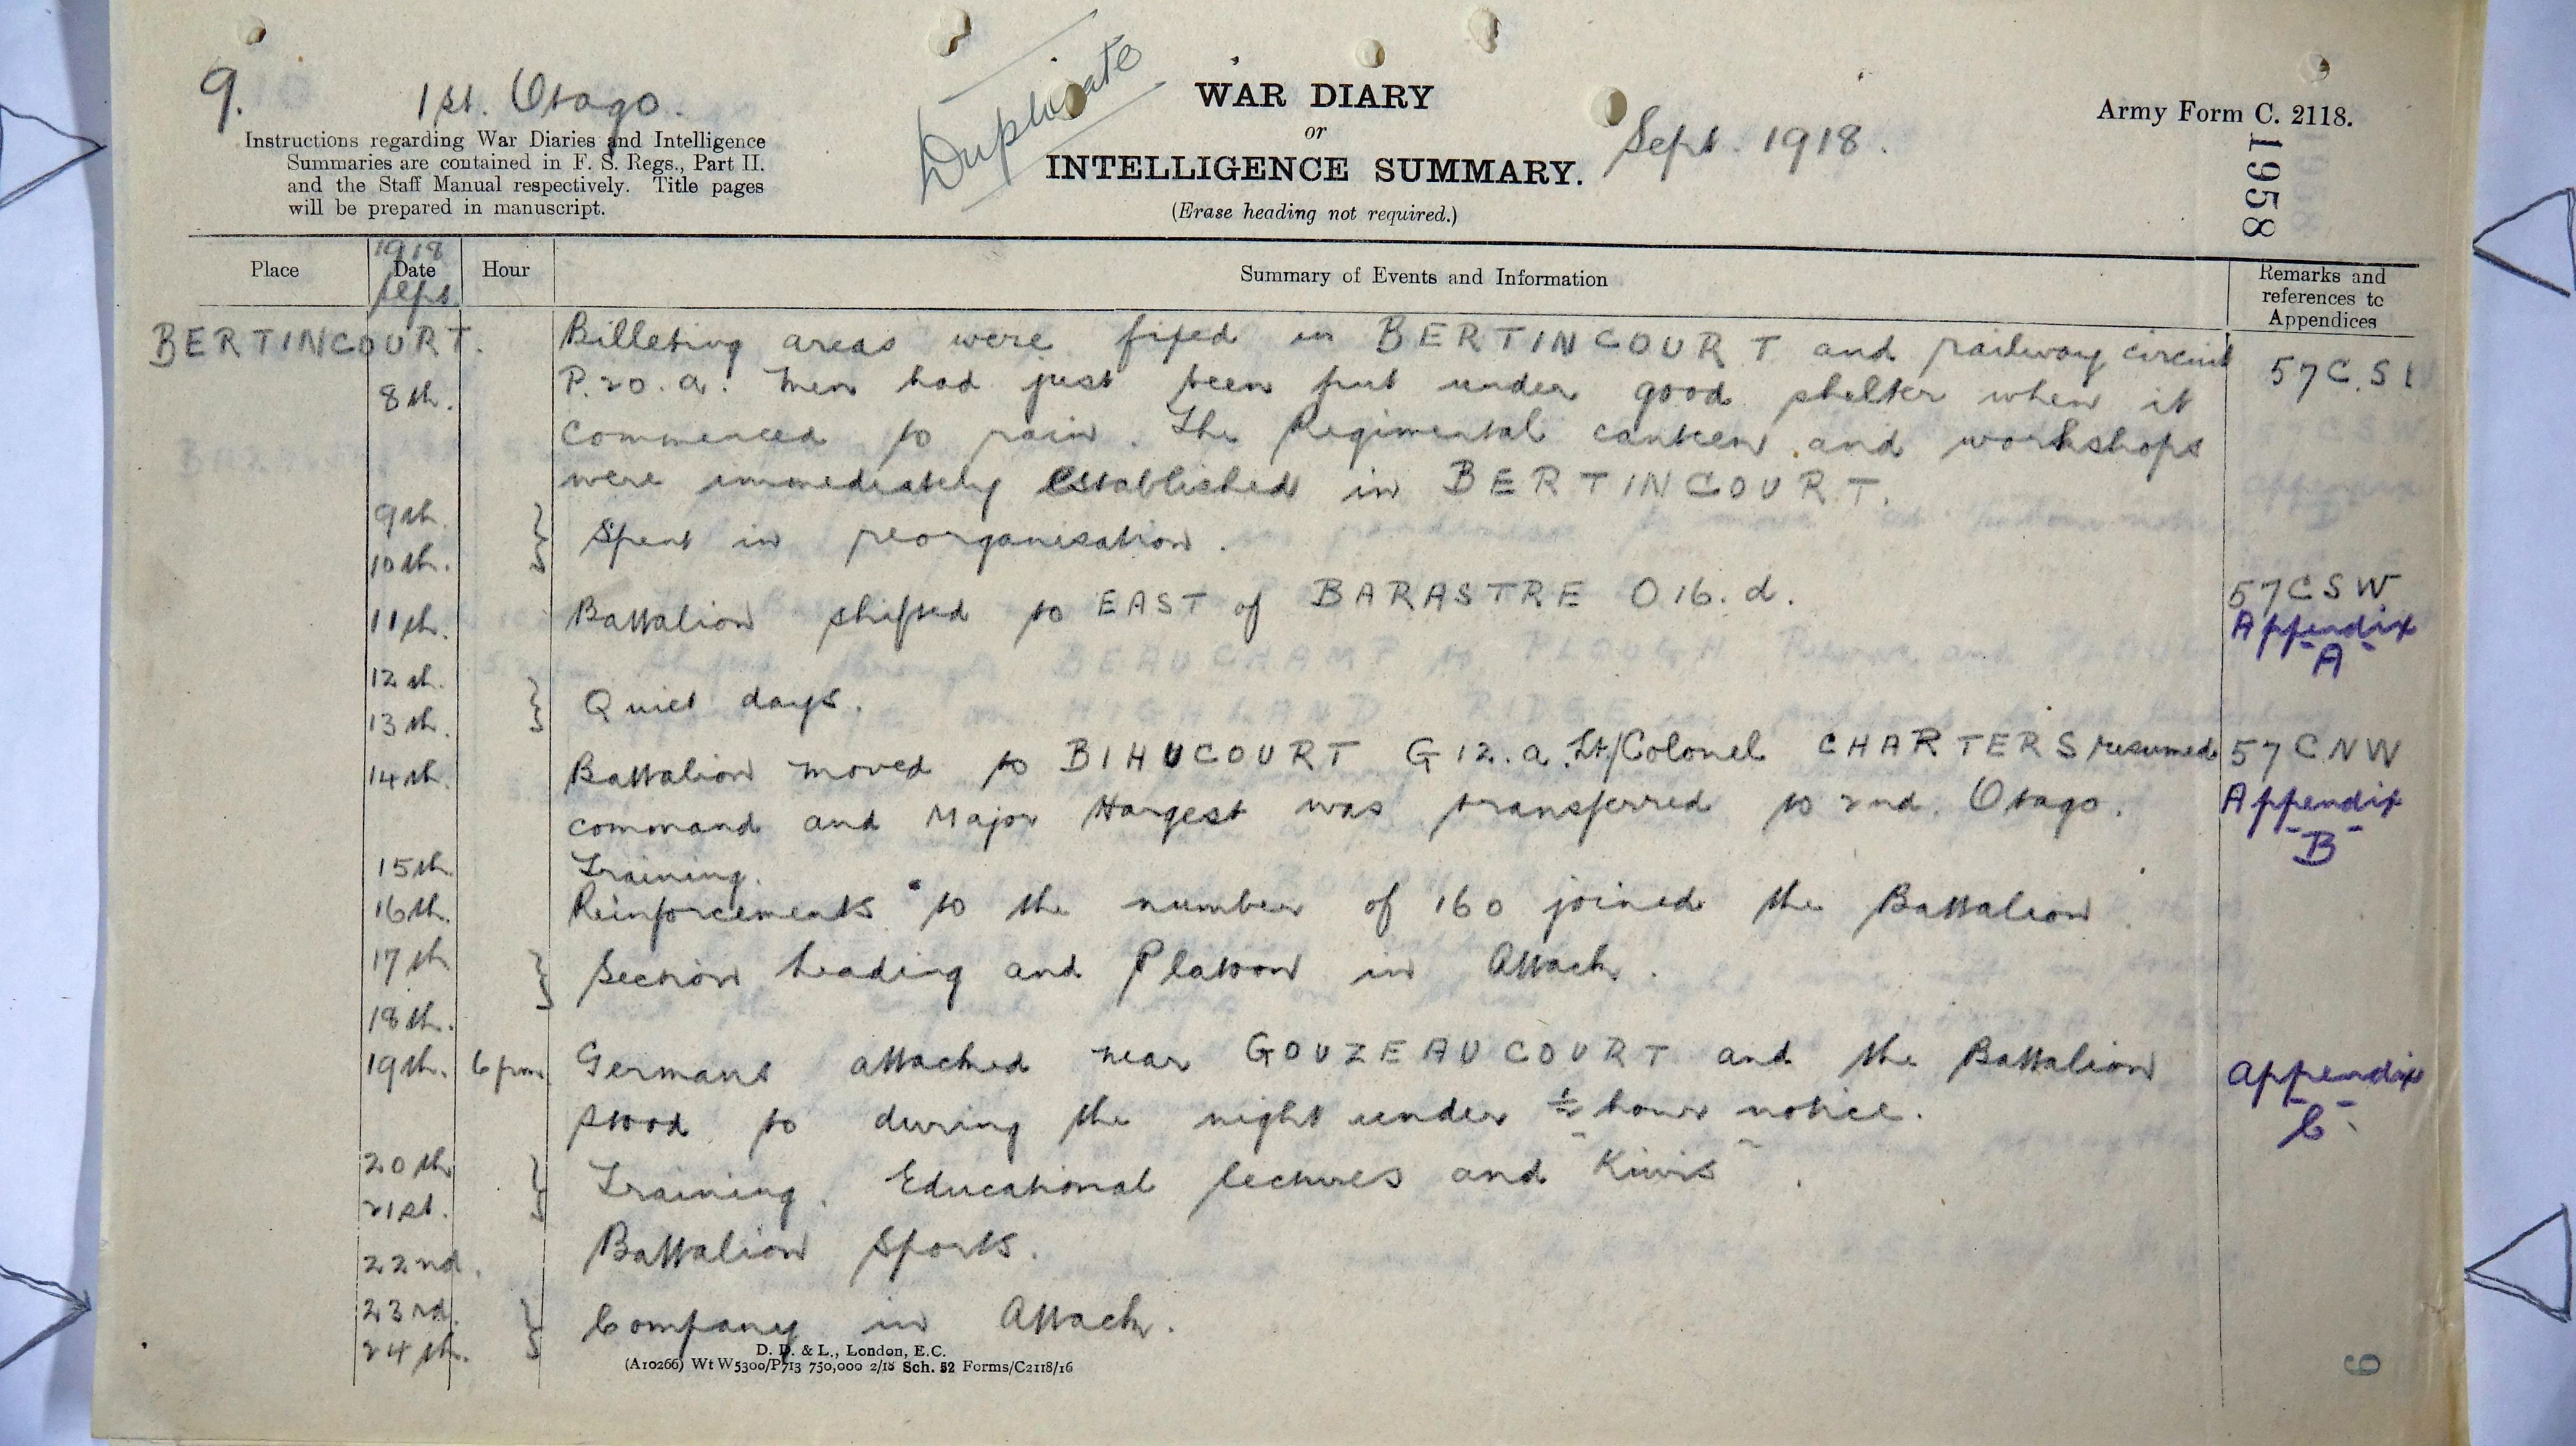 9.
1st. Otago.
Duplicate
WAR DIARY
or
INTELLIGENCE SUMMARY.
(Erase heading not required.)
Sept. 1918.
Army Form C. 2118.
1958
Instructions regarding War Diaries and Intelligence
Summaries are contained in F. S. Regs., Part II.
and the Staff Manual respectively. Title pages
will be prepared in manuscript.
Place
1918
Date
Sept.
Hour
Summary of Events and Information
Remarks and
references to
Appendices
BERTINCOURT. Billeting areas were fixed in BERTINCOURT and railway circuit
8th. P.20.a. Men had just been put under good shelter when it 57C.S
commenced to rain. The Regimental canteen and workshops
were immediately established in BERTINCOURT.
9th.
10th. } Spent in reorganisation.
11th. Battalion shifted to EAST of BARASTRE O16.d. 57CSW
Appendix
A
12th.
13th. } Quiet days.
14th. Battalion moved to BIHUCOURT G12.a. Lt/Colonel CHARTERS resumed 57CNW
command and Major Hargest was transferred to 2nd. Otago. Appendix
B
15th Training.
16th. Reinforcements to the number of 160 joined the Battalion.
17th
18th. } Section leading and Platoon in Attack.
19th. 6pm Germans attacked near GOUZEAUCOURT and the Battalion Appendix
stood to during the night under ½ hour notice. C.
20th
21st. } Training. Educational lectures and "Kiwis".
22nd. Battalion Sports.
23rd.
24th. } Company in Attack.
D. D. & L., London, E.C.
(A10266) Wt W5300/P713 750,000 2/18 Sch. 52 Forms/C2118/16
9